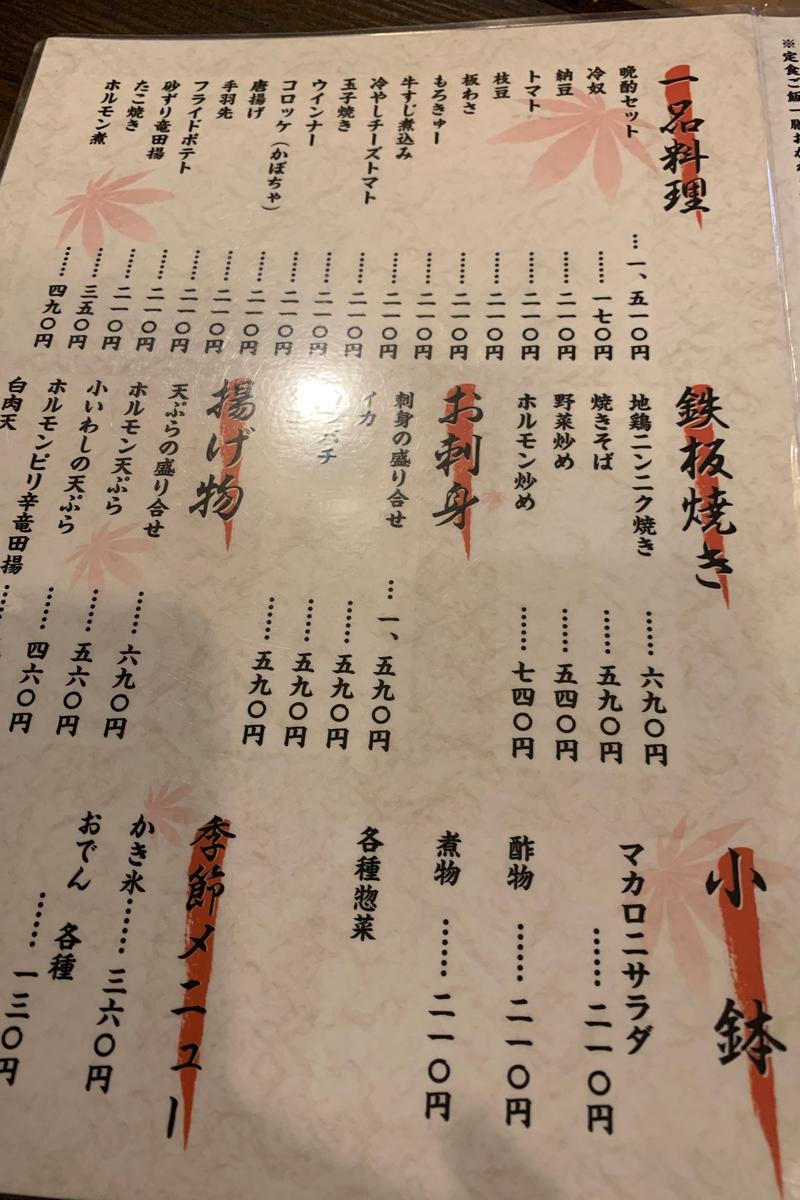 ※定食ご飯一膳おか
一品料理
晩酌セット……一、五一〇円
冷奴……一七〇円
納豆……二一〇円
トマト……二一〇円
枝豆……二一〇円
板わさ……二一〇円
もろきゅー……二一〇円
牛すじ煮込み……二一〇円
冷やしチーズトマト……二一〇円
玉子焼き……二一〇円
ウインナー……二一〇円
コロッケ（かぼちゃ）……二一〇円
唐揚げ……二一〇円
手羽先……二一〇円
フライドポテト……二一〇円
砂ずり竜田揚……二一〇円
たこ焼き……三五〇円
ホルモン煮……四九〇円
鉄板焼き
地鶏ニンニク焼き……六九〇円
焼きそば……五九〇円
野菜炒め……五四〇円
ホルモン炒め……七四〇円
お刺身
刺身の盛り合せ……一、五九〇円
イカ……五九〇円
パチ……五九〇円
……五九〇円
揚げ物
天ぷらの盛り合せ……六九〇円
ホルモン天ぷら……五六〇円
小いわしの天ぷら……四六〇円
ホルモンピリ辛竜田揚……
白肉天
小鉢
マカロニサラダ……二一〇円
酢物……二一〇円
煮物……二一〇円
各種惣菜
季節メニュー
かき氷……三六〇円
おでん 各種……一三〇円